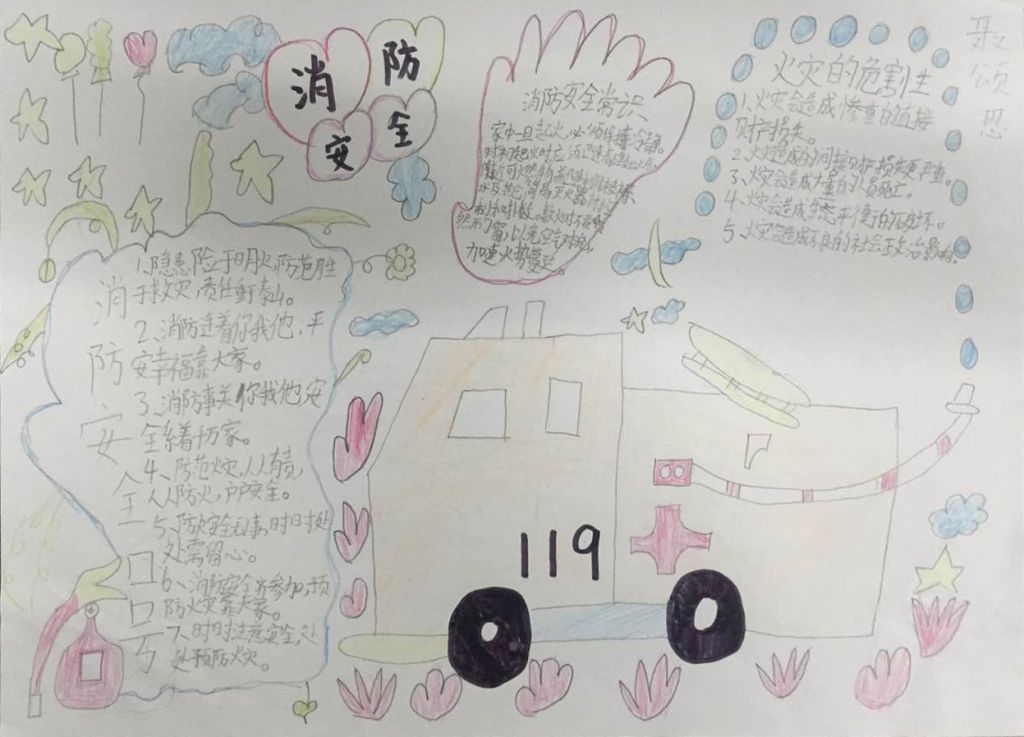 消防
安全
聂颂思
消防安全常识
家中一旦起火,必须保持冷静。
对初起火时应
加速火势蔓延
火灾的危害性
1、火灾会造成惨重的直接
财产损失。
2、火灾造成的间接财产损失更严重。
3、火灾会造成大量的人员死亡。
4、火灾会造成生态平衡的破坏。
5、火灾会造成不良的社会政治影响。
消防安全口号
1、隐患险于明火,防范胜
于救灾,责任重于泰山。
2、消防连着你我他,平
安幸福靠大家。
3、消防事关你我他,安
全系着千万家。
4、防范火灾,人人有责,
人人防火,户户安全。
5、防火安全无事,时时处
处需留心。
6、消防安全齐参加,预
防火灾靠大家。
7、时时注意安全,处
处预防火灾。
119